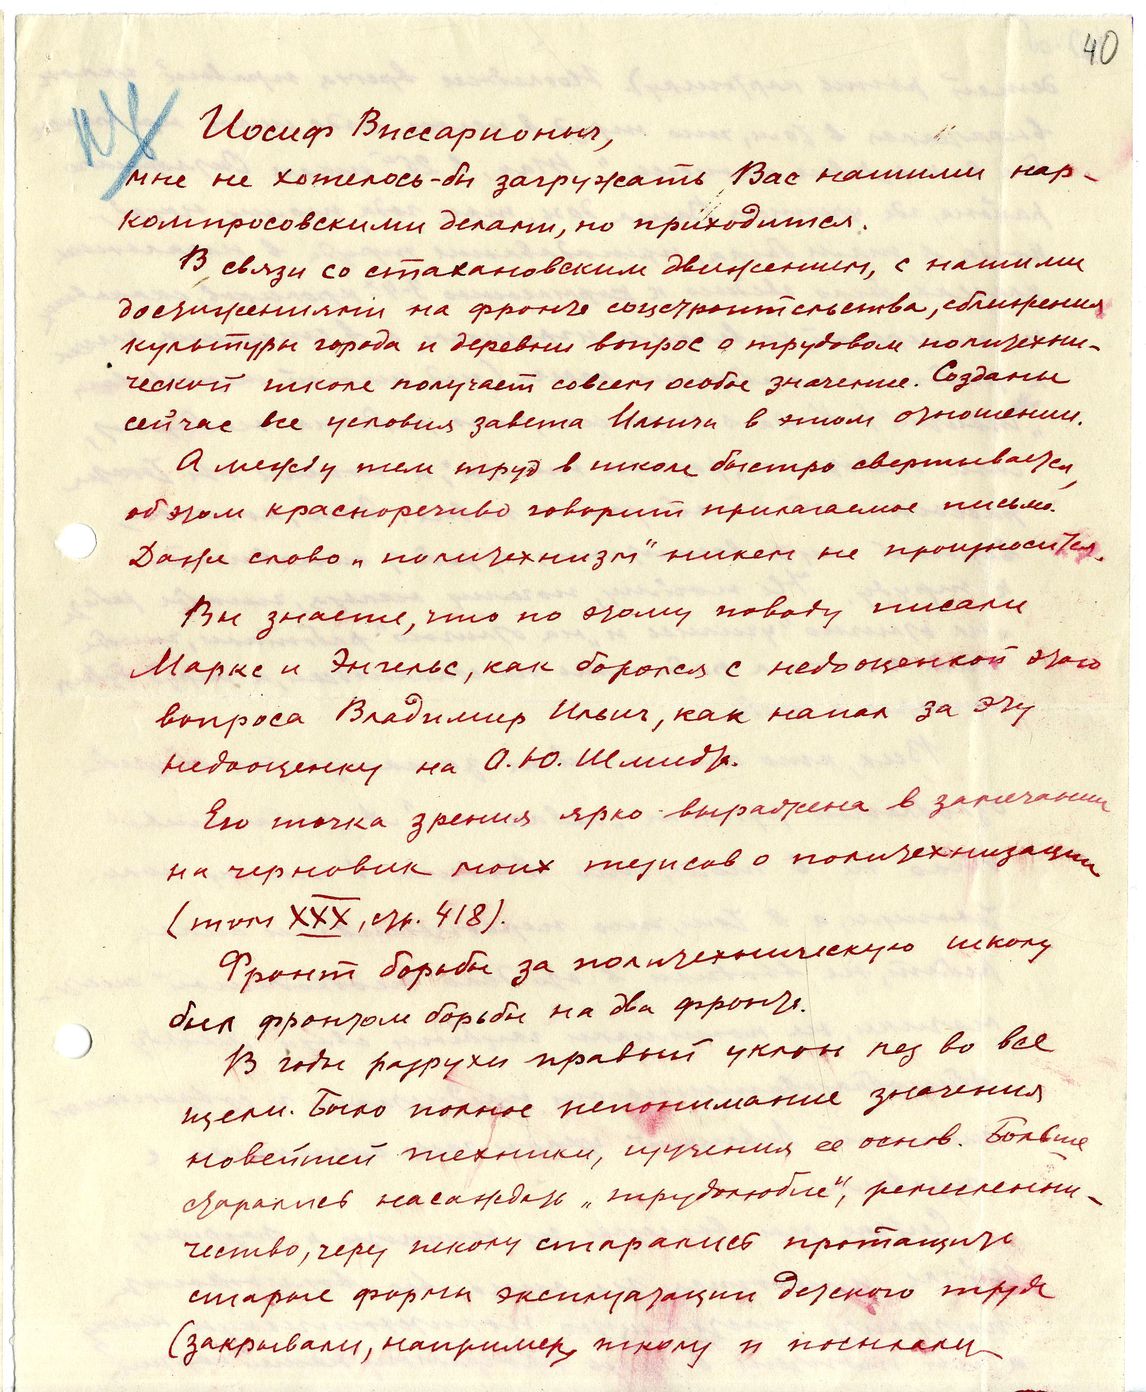 40
Иосиф Виссарионыч,
мне не хотелось-бы загружать Вас нашими нар-
компросовскими делами, но приходится.
В связи со стахановским движением, с нашими
достижениями на фронте соцстроительства, сближения
культуры города и деревни вопрос о трудовом политехни-
ческой школе получает совсем особое значение. Созданы
сейчас все условия завета Ильича в этом отношении.
А между тем труд в школе быстро свертывается,
об этом красноречиво говорит прилагаемое письмо.
Даже слово „политехнизм" никем не произносится.
Вы знаете, что по этому поводу писали
Маркс и Энгельс, как боролся с недооценкой этого
вопроса Владимир Ильич, как напал за эту
недооценку на О.Ю. Шмидта.
Его точка зрения ярко выражена в замечании
на черновик моих тезисов о политехнизации
(том XXX, стр. 418).
Фронт борьбы за политехническую школу
был фронтом борьбы на два фронта.
В годы разрухи правый уклон лез во все
щели. Было полное непонимание значения
новейшей техники, изучения ее основ. Больше
старались насаждать „трудолюбие", ремесленни-
чество, через школу старались протащить
старые формы эксплуатации детского труда
(закрывали, например, школу и посылали